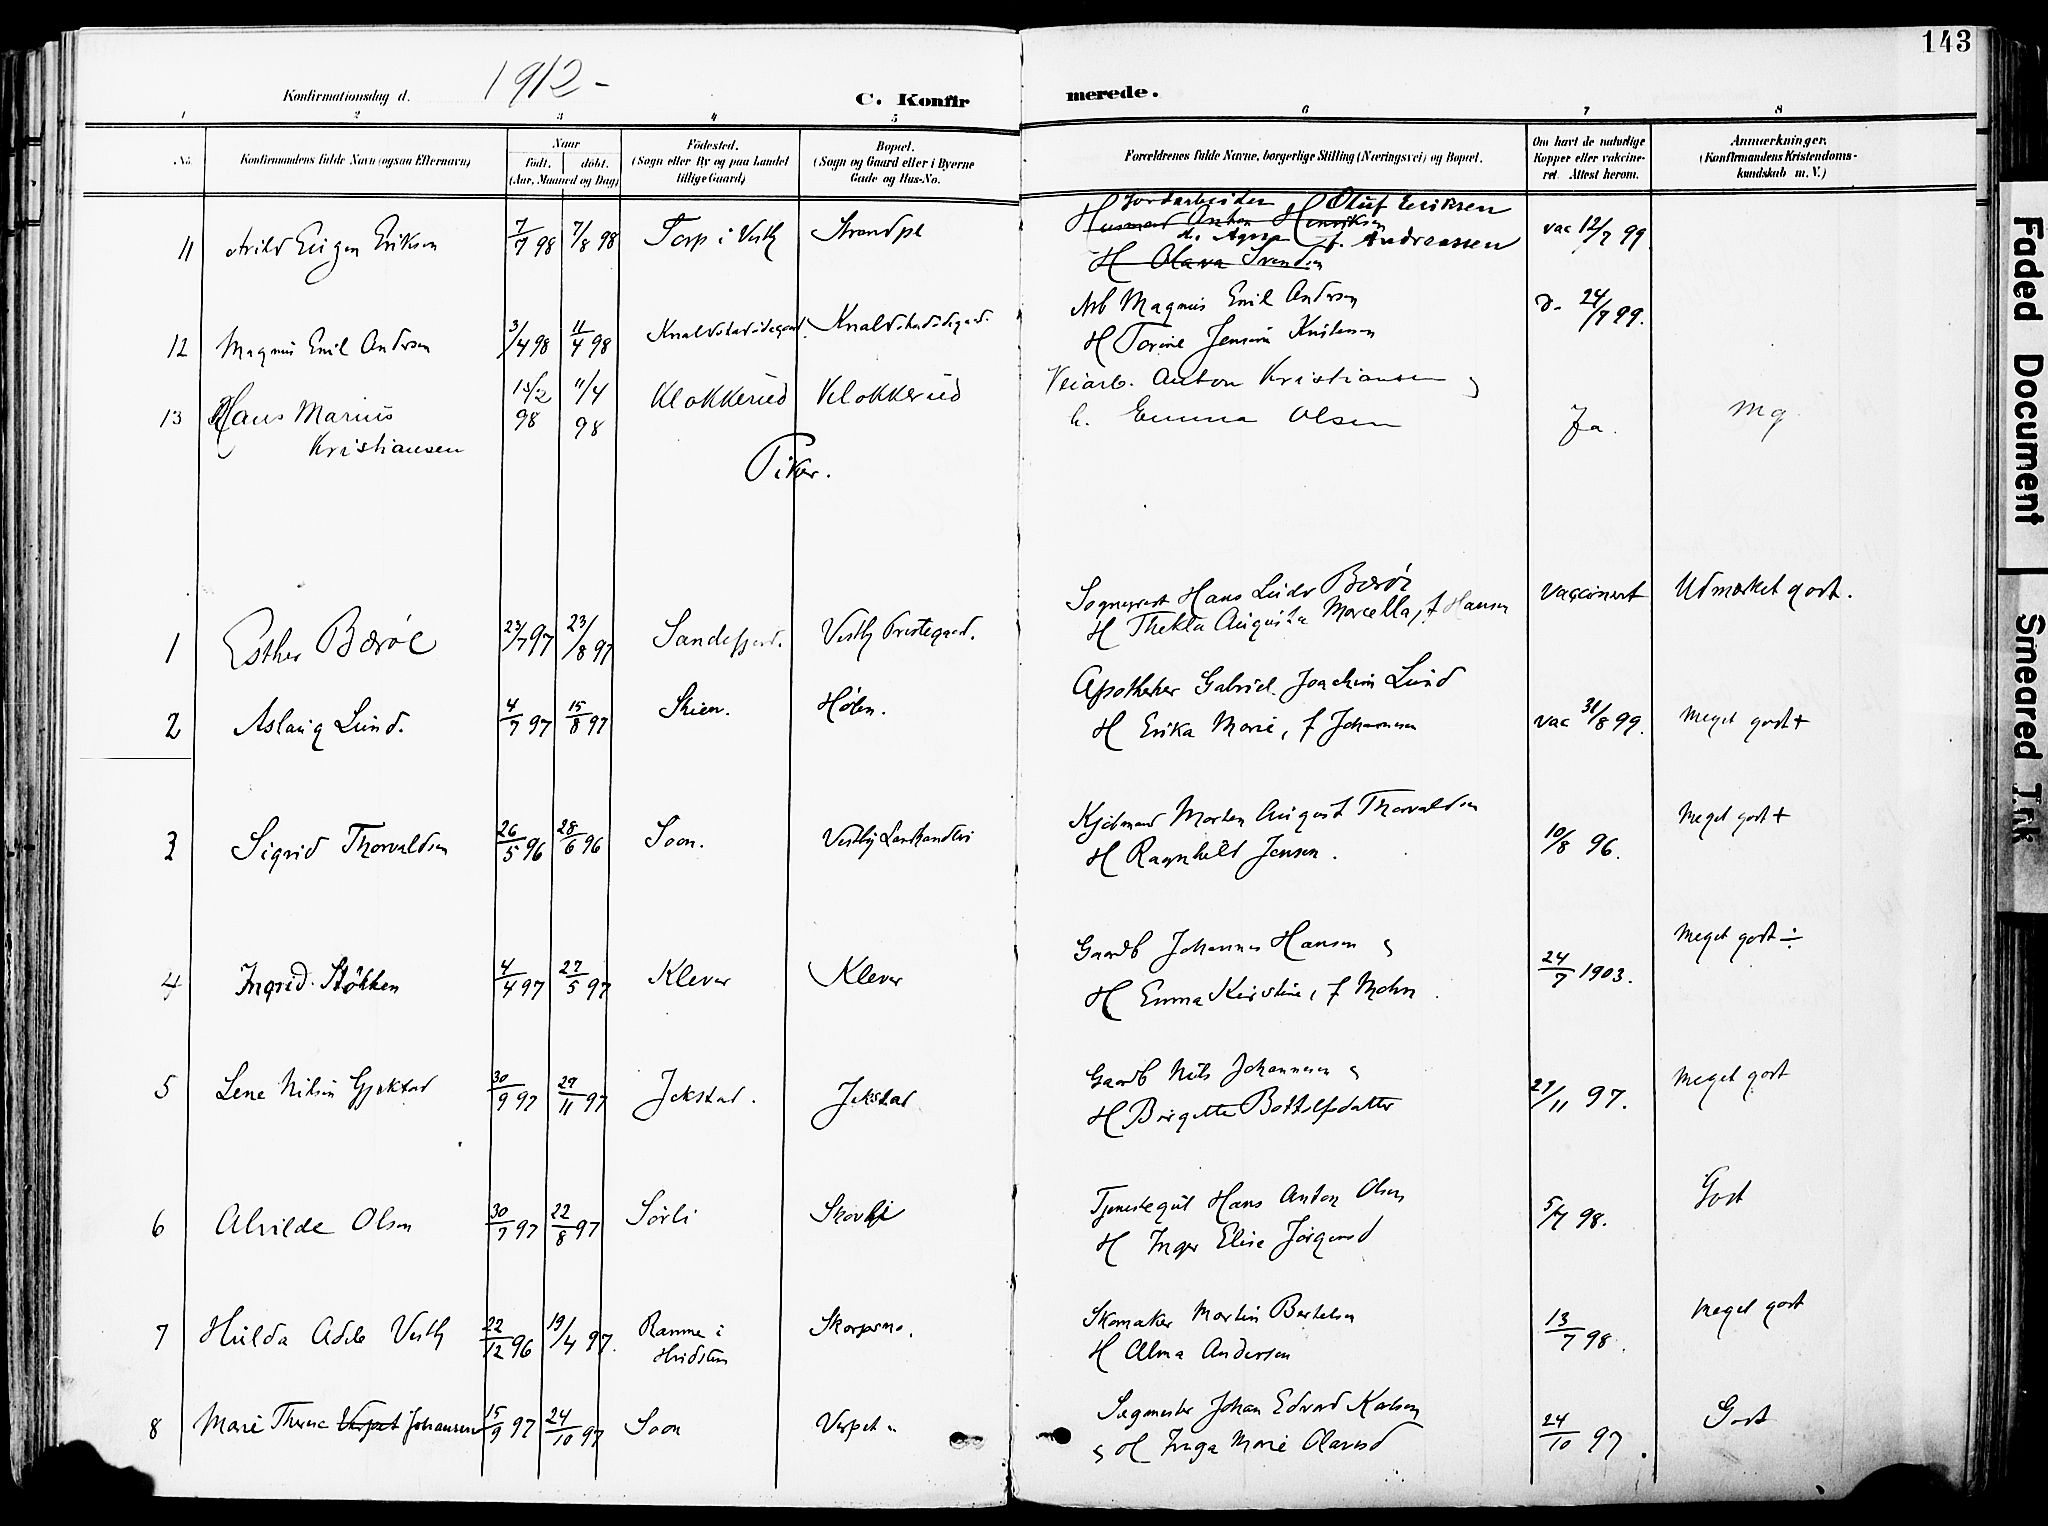 143
Konfirmationsdag d. 1912 -
C. Konfirmerede.
1 2 3 4 5 6 7 8
No. Konfirmandens fulde Navn (ogsaa Efternavn)
Naar født. døbt. (Aar, Maaned og Dag)
Fødested. (Sogn eller By og paa Landet tillige Gaard)
Bopæl. (Sogn og Gaard eller i Byerne Gade og Hus-No.
Forældrenes fulde Navne, borgerlige Stilling (Næringsvei) og Bopæl.
Om havt de naturlige Kopper eller vakcineret. Attest herom.
Anmærkninger. (Konfirmandens Kristendomskundskab m. V.)
Jordarbeider Oluf Eriksen
11 Arild Eugen Eriksen 7/7 98 7/8 98 Torp i Vestby Strandpl Husmand Anton Henriksen vac 12/7 99
f. Andreassen
H Olava Svendsen
12 Magnus Emil Andersen 3/4 98 11/4 98 Knaldstadødegaard Knaldstadødegard. Arb Magnus Emil Andersen d. 24/7 99.
H Torine Jensine Kristensen
13 Hans Marius 15/2 98 11/4 98 Klokkerud Klokkerud Veiarb. Anton Kristiansen og
Kristiansen h. Emma Olsen Ja. Mg.
Piker.
1 Esther Barøe 23/7 97 23/8 97 Sandefjord. Vestby Prestegaard. Sogneprest Hans Ludv Barøe vaccinert Udmærket godt.
H Thekla Augusta Marcella, f Hansen
2 Aslaug Lund. 4/7 97 15/8 97 Skien. Hølen. Apotheker Gabriel Joachim Lund
H Erika Marie, f Johannesen vac 31/8 99. Meget godt +
3 Sigrid Thorvaldsen 26/5 96 28/6 96 Soon. Vestby Landhandleri Kjøbmand Morten August Thorvaldsen
H Ragnhild Jensen. 10/8 96. Meget godt +
4 Ingrid Støkken 4/4 97 27/5 97 Klever Klever Gaardb Johannes Hansen og
H Emma Kirstine, f Mohn. 24/7 1903. Meget godt ÷
5 Lene Nilsine Gjekstad 30/9 97 29/11 97 Jekstad. Jekstad Gaardb Nils Johannesen og
H Birgitte Bottolfsdatter 29/11 97. Meget godt
6 Alvilde Olsen 30/7 97 22/8 97 Sørli Skovli Tjenestegut Hans Anton Olsen
H Inger Elise Jørgensd 5/7 98. Godt
7 Hulda Adele Vestby 22/12 96 19/4 97. Ramme i Skorpemo. Skomaker Martin Bertelsen
Hvidsten H Alma Andersen 13/7 98. Meget godt
8 Marie Therese Verpet Johansen 15/9 97 24/10 97 Soon Verpet Sagmester Johan Edvard Karlsen
og H Inga Marie Olavesd 24/10 97. Godt
Faded Document
Smeared Ink